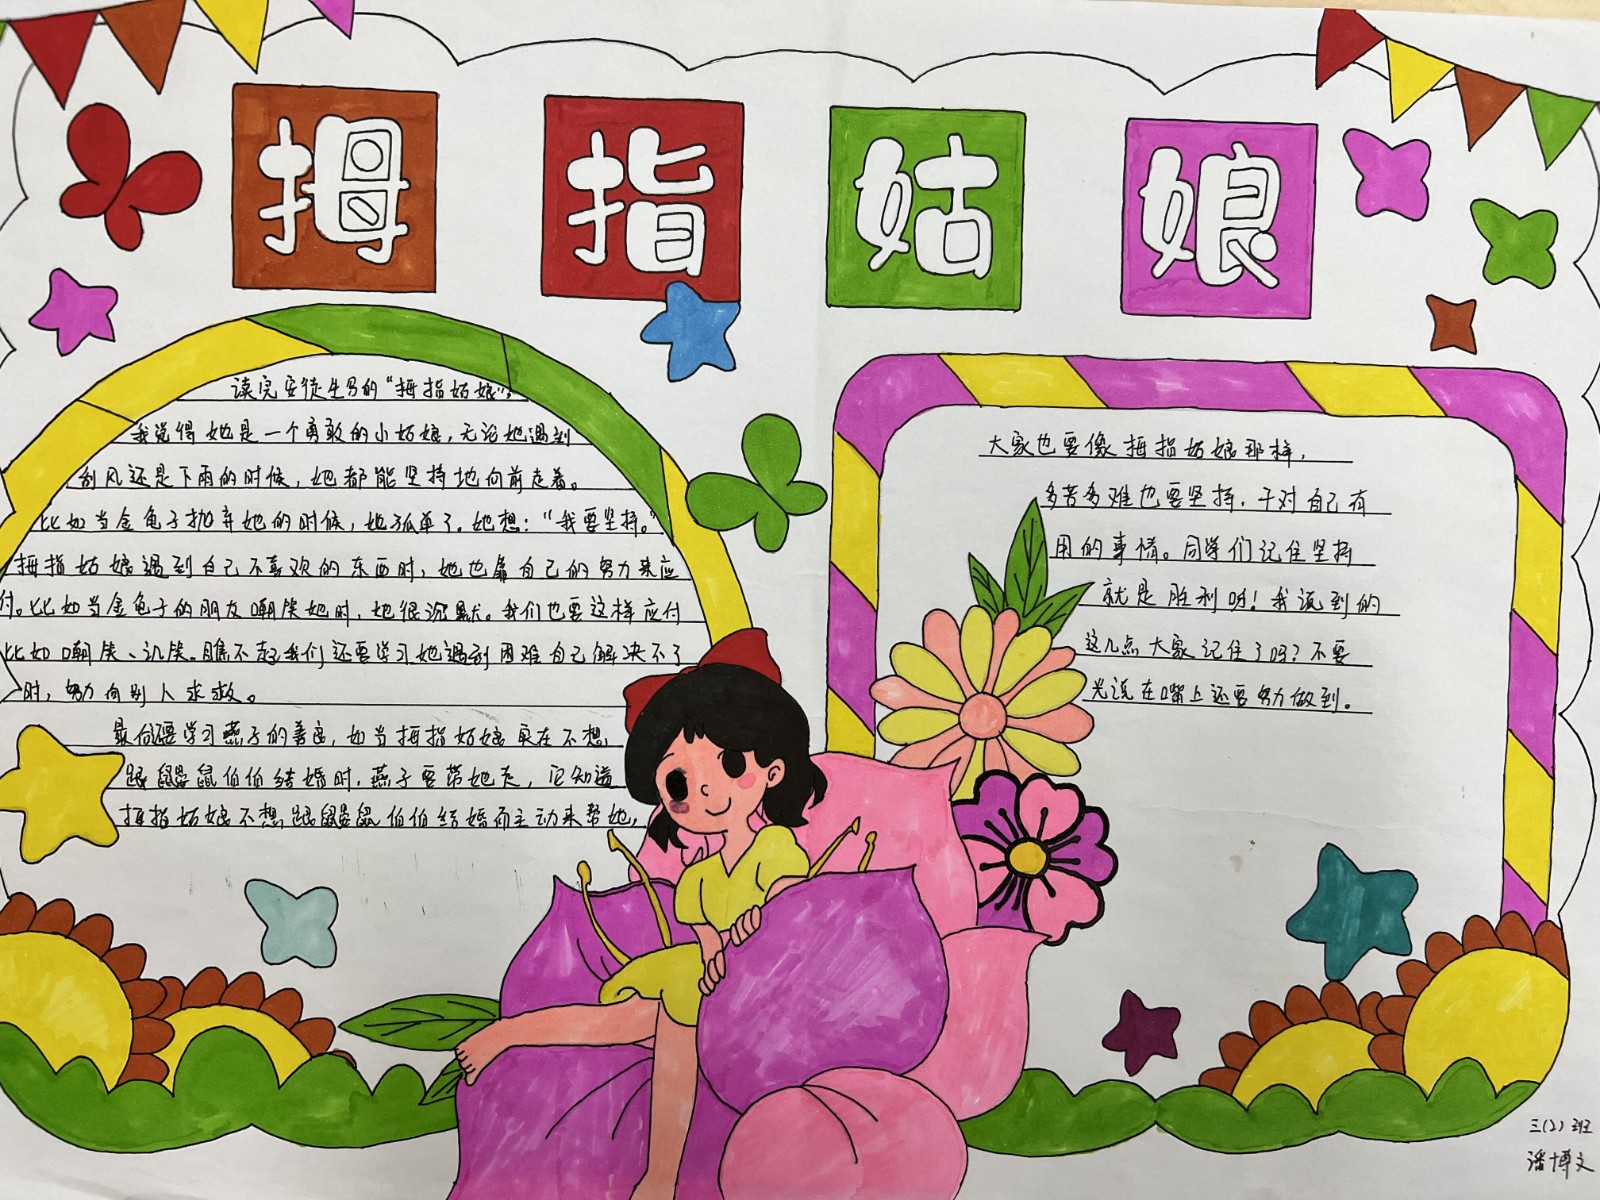 拇指姑娘
读完安徒生写的“拇指姑娘”，
我觉得她是一个勇敢的小姑娘，无论她遇到
刮风还是下雨的时候，她都能坚持地向前走着。
比如当金龟子抛弃她的时候，她孤单了。她想：“我要坚持。”
拇指姑娘遇到自己不喜欢的东西时，她也靠自己的努力来应
付。比如当金龟子的朋友嘲笑她时，她很沉默。我们也要这样应付
比如嘲笑、讥笑。瞧不起我们还要学习她遇到困难自己解决不了
时，努力向别人求救。
最后要学习燕子的善良，如当拇指姑娘实在不想
跟鼹鼠伯伯结婚时，燕子要带她走，它知道
拇指姑娘不想跟鼹鼠伯伯结婚而主动来帮她，
大家也要像拇指姑娘那样，
多苦多难也要坚持，干对自己有
用的事情。同学们记住坚持
就是胜利呀！我说到的
这几点大家记住了吗？不要
光说在嘴上还要努力做到。
三(2)班
潘博文